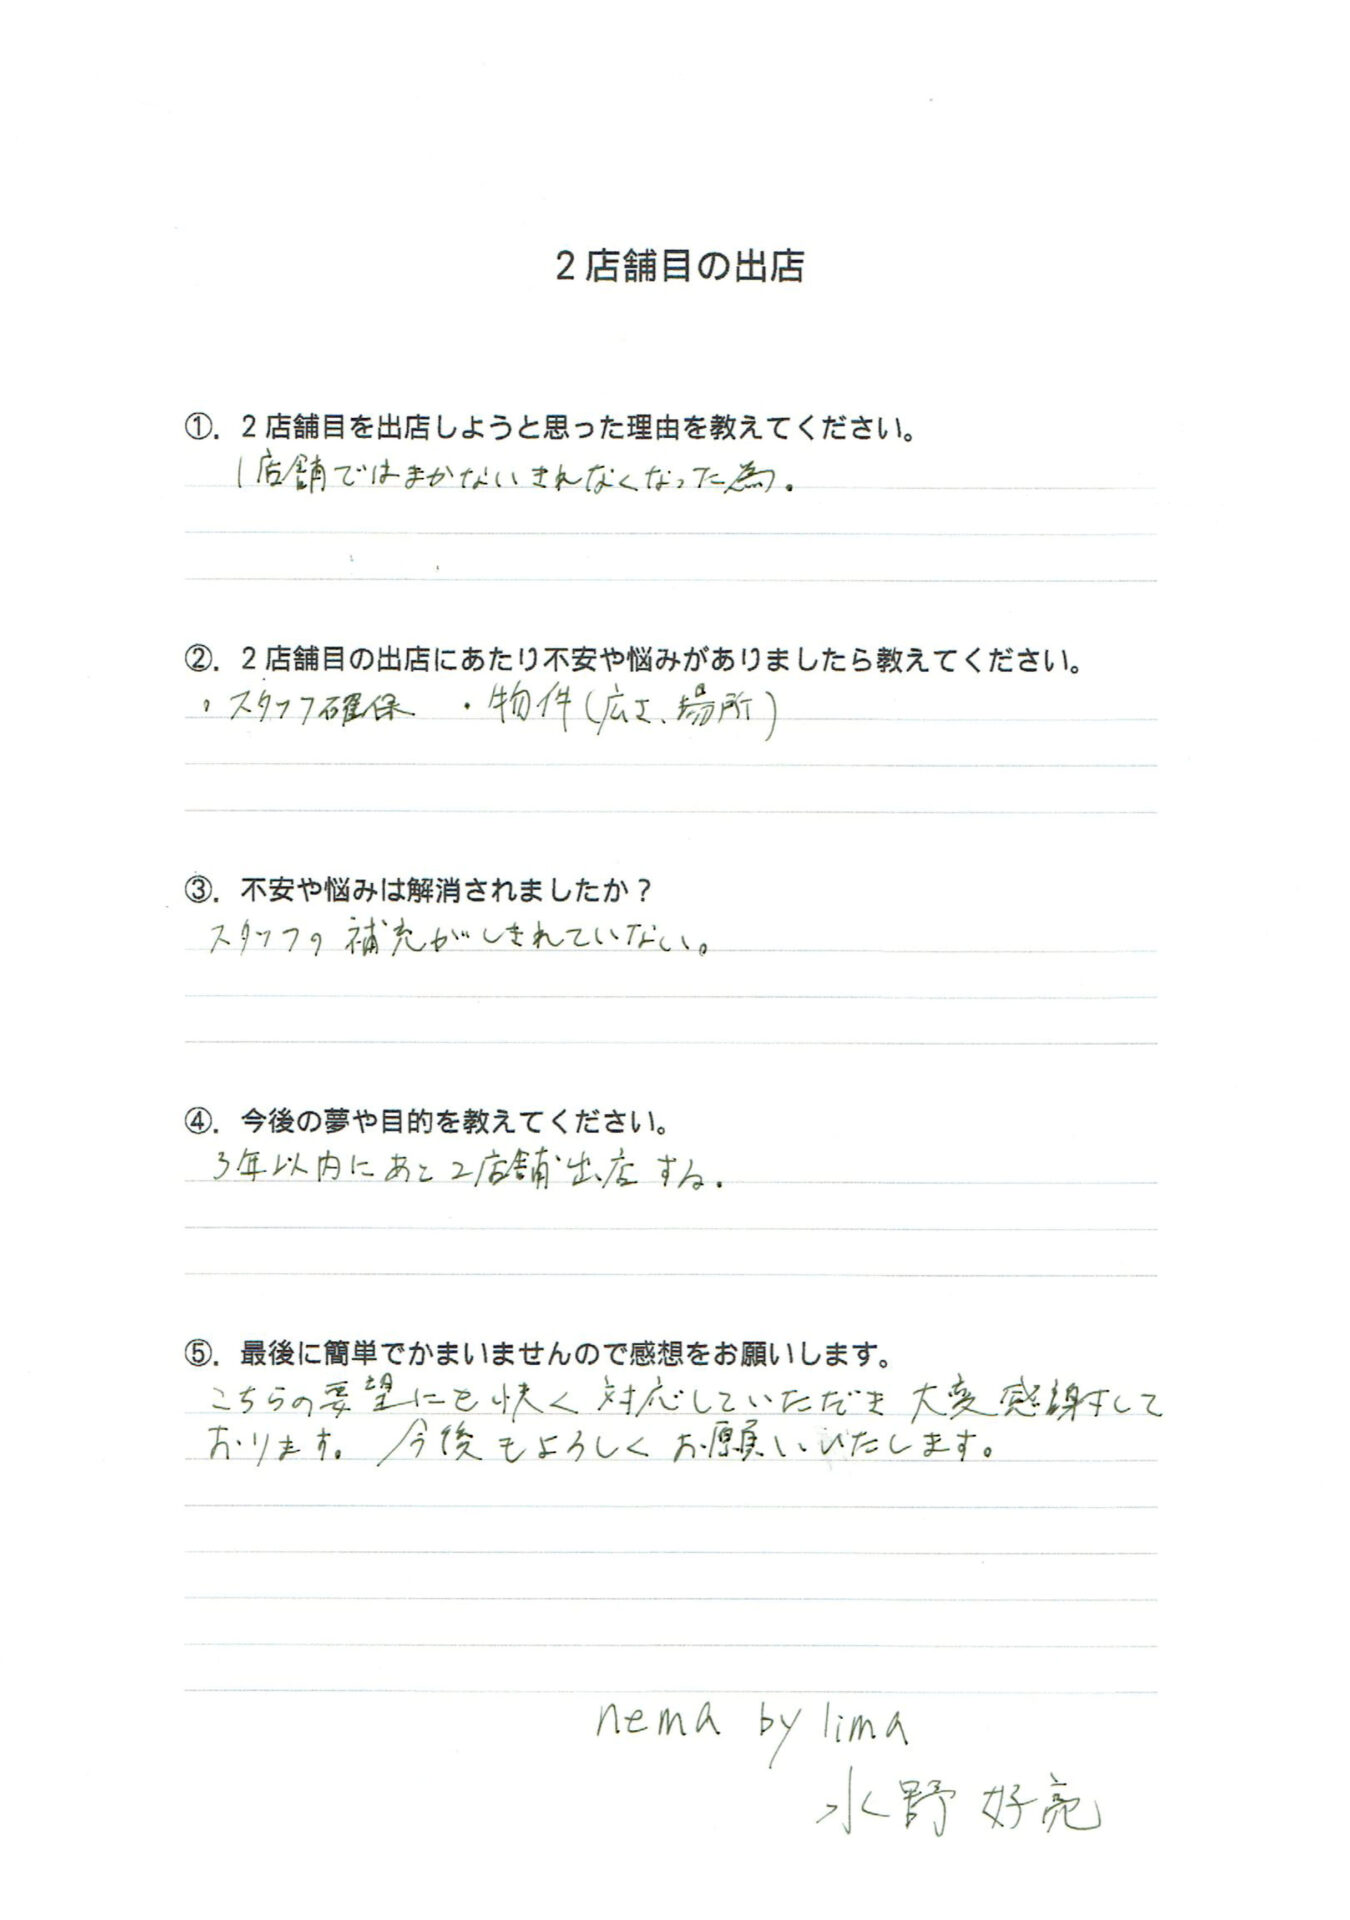 2店舗目の出店
①．2店舗目を出店しようと思った理由を教えてください。
1店舗ではまかないきれなくなった為.
②．2店舗目の出店にあたり不安や悩みがありましたら教えてください。
・スタッフ確保 ・物件(広さ、場所)
③．不安や悩みは解消されましたか？
スタッフの補充がしきれていない。
④．今後の夢や目的を教えてください。
3年以内にあと2店舗出店する.
⑤．最後に簡単でかまいませんので感想をお願いします。
こちらの要望にも快く対応していただき大変感謝して
おります。今後もよろしくお願いいたします。
nema by lima
水野 好亮